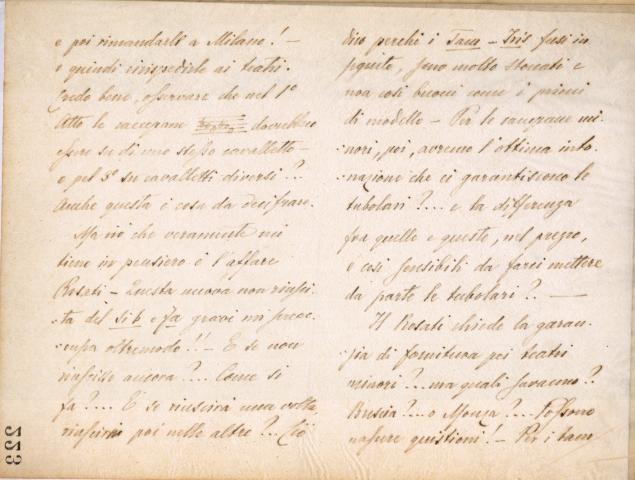 e poi rimandarli a Milano! —
e quindi rispedirle ai teatri.
Credo bene, osservare che nel 1º
Atto le campane dovrebbero
essere su di uno stesso cavalletto —
e pel 3º su cavalletti diversi?..
Anche questa è cosa da decifrare.
Ma ciò che veramente mi
tiene in pensiero è l'affare
Rosati — Questa nuova non riusci-
ta del si b e fa gravi mi preoc-
cupa oltremodo!! — E se non
riuscisse ancora?... Come si
fa?.... E se riuscirà una volta,
riuscirà poi nelle altre?... Ciò
dico perchè i Tam - Iris fusi in
seguito, sono molto stonati e
non così buoni come i primi
di modello — Per le campane mi-
nori, poi, avremo l'ottima into-
nazione che ci garantiscono le
tubolari?.... e la differenza
fra quelle e queste, nel prezzo,
è così sensibili da farci mettere
da parte le tubolari?. —
Il Rosati chiede la garan-
zia di fornitura pei teatri
minori?... ma quali saranno??
Brescia?... o Monza?... Possono
nascere quistioni! — Per i tam
223